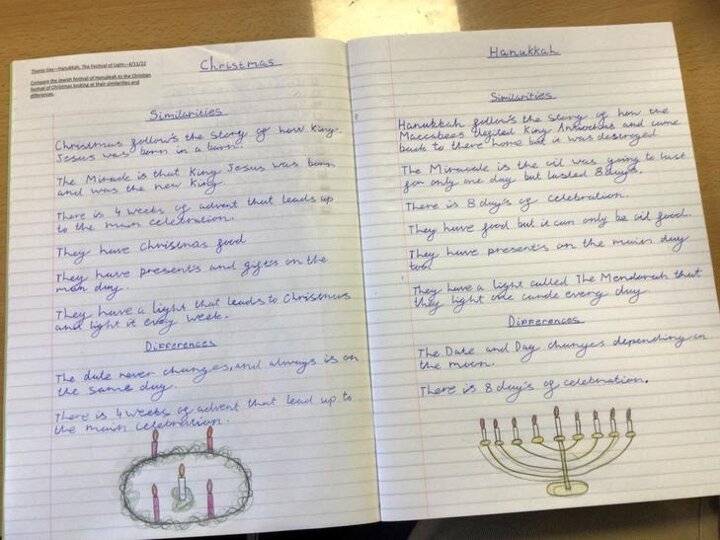 Theme day – Hanukkah, The Festival of Light – 4/11/22
Compare the Jewish festival of Hanukkah to the Christian
festival of Christmas looking at their similarities and
differences.
Christmas
Similarities
Christmas follow's the story of how King
Jesus was born in a barn.
The Miracle is that King Jesus was born
and was the new King.
There is 4 weeks of advent that leads up
to the main celebration.
They have Christmas food
They have present's and gift's on the
main day.
They have a light that leads to Christmas
and light it evey week.
Differences
The date never changes, and always is on
the same day.
There is 4 weeks of advent that lead up to
the main celebration.
Hanukkah
Similarities
Hanukkah follow's the story of how the
Maccabees King Antiochus and came
back to there home but it was destroyed
The Miracale is the oil was going to last
for only one day but lasted 8 day's.
There is 8 day's of celebration.
They have food but it can only be oil food.
They have present's on the main day
too.
They have a light called The Mendorah that
they light one candle every day
Differences
The Date and Day changes depending on
the moon.
There is 8 day's of celebration.